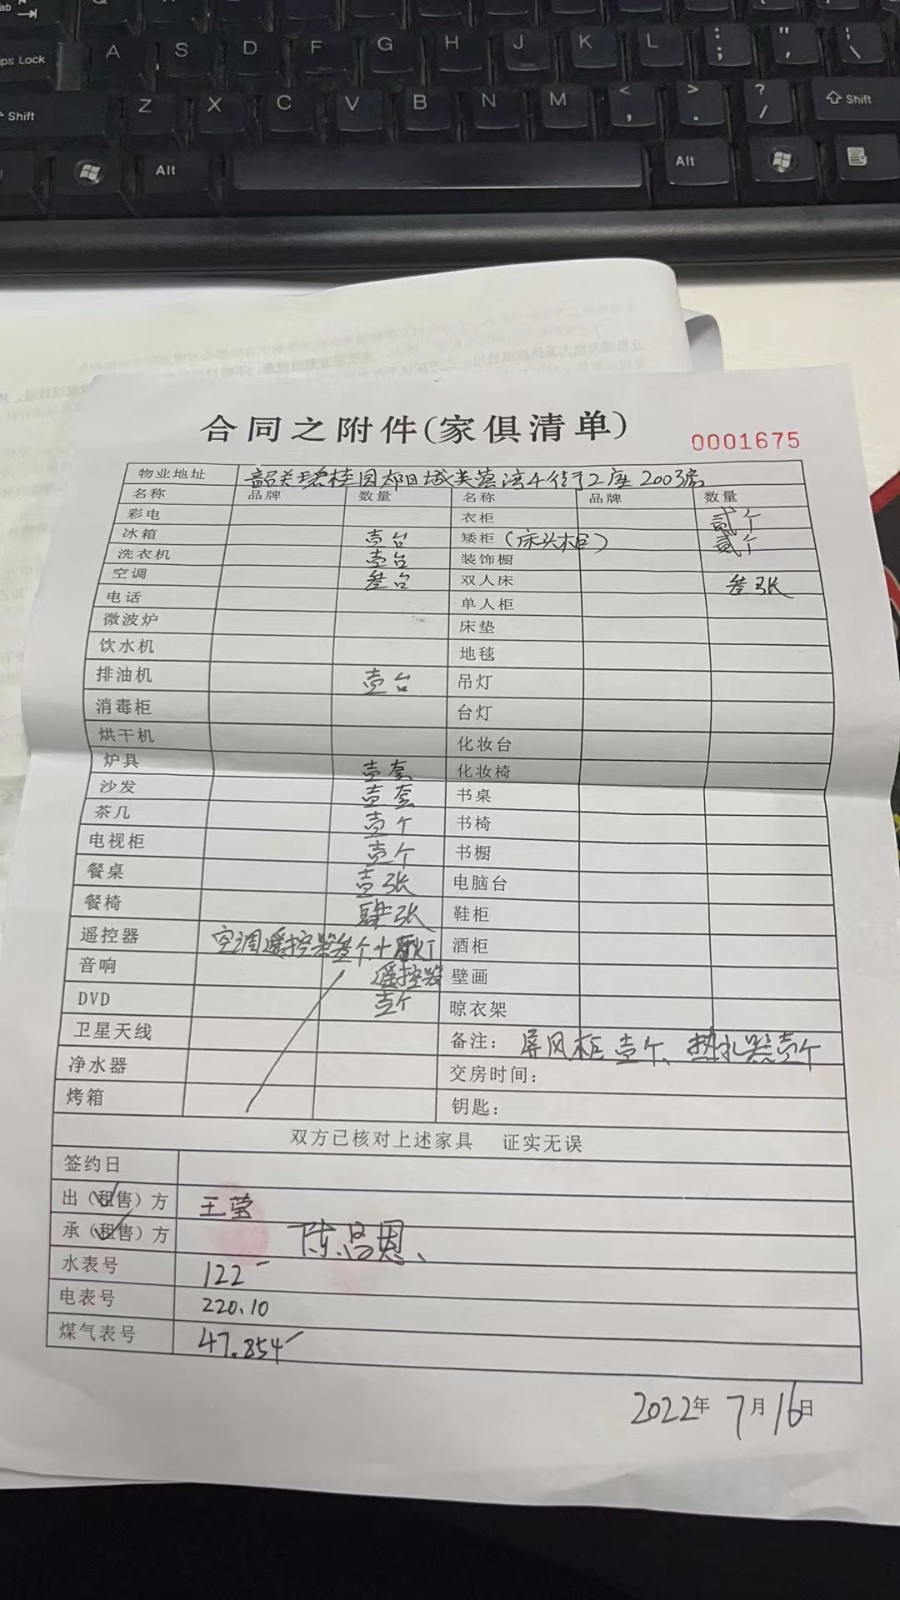 Caps Lock A S D F G H J K L : ; " ' | \
Shift Z X C V B N M < , > . ? / Shift
Alt Alt
合同之附件(家俱清单)
0001675
物业地址 韶关碧桂园太阳城芙蓉湾4街2座2003房
名称 品牌 数量 名称 品牌 数量
彩电 衣柜 贰个
冰箱 壹台 矮柜(床头柜) 贰个
洗衣机 壹台 装饰橱
空调 叁台 双人床 叁张
电话 单人柜
微波炉 床垫
饮水机 地毯
排油机 壹台 吊灯
消毒柜 台灯
烘干机 化妆台
炉具 壹套 化妆椅
沙发 壹套 书桌
茶几 壹个 书椅
电视柜 壹个 书橱
餐桌 壹张 电脑台
餐椅 肆张 鞋柜
遥控器 空调遥控器叁个,+ 灯 酒柜
音响 遥控器 壁画
DVD 壹个 晾衣架
卫星天线 备注: 屏风柜壹个、热水器壹个
净水器 交房时间:
烤箱 钥匙:
双方已核对上述家具 证实无误
签约日
出(租售)方 王莹
承(租售)方 陈昌恩
水表号 122
电表号 220.10
煤气表号 47.854
2022年7月16日